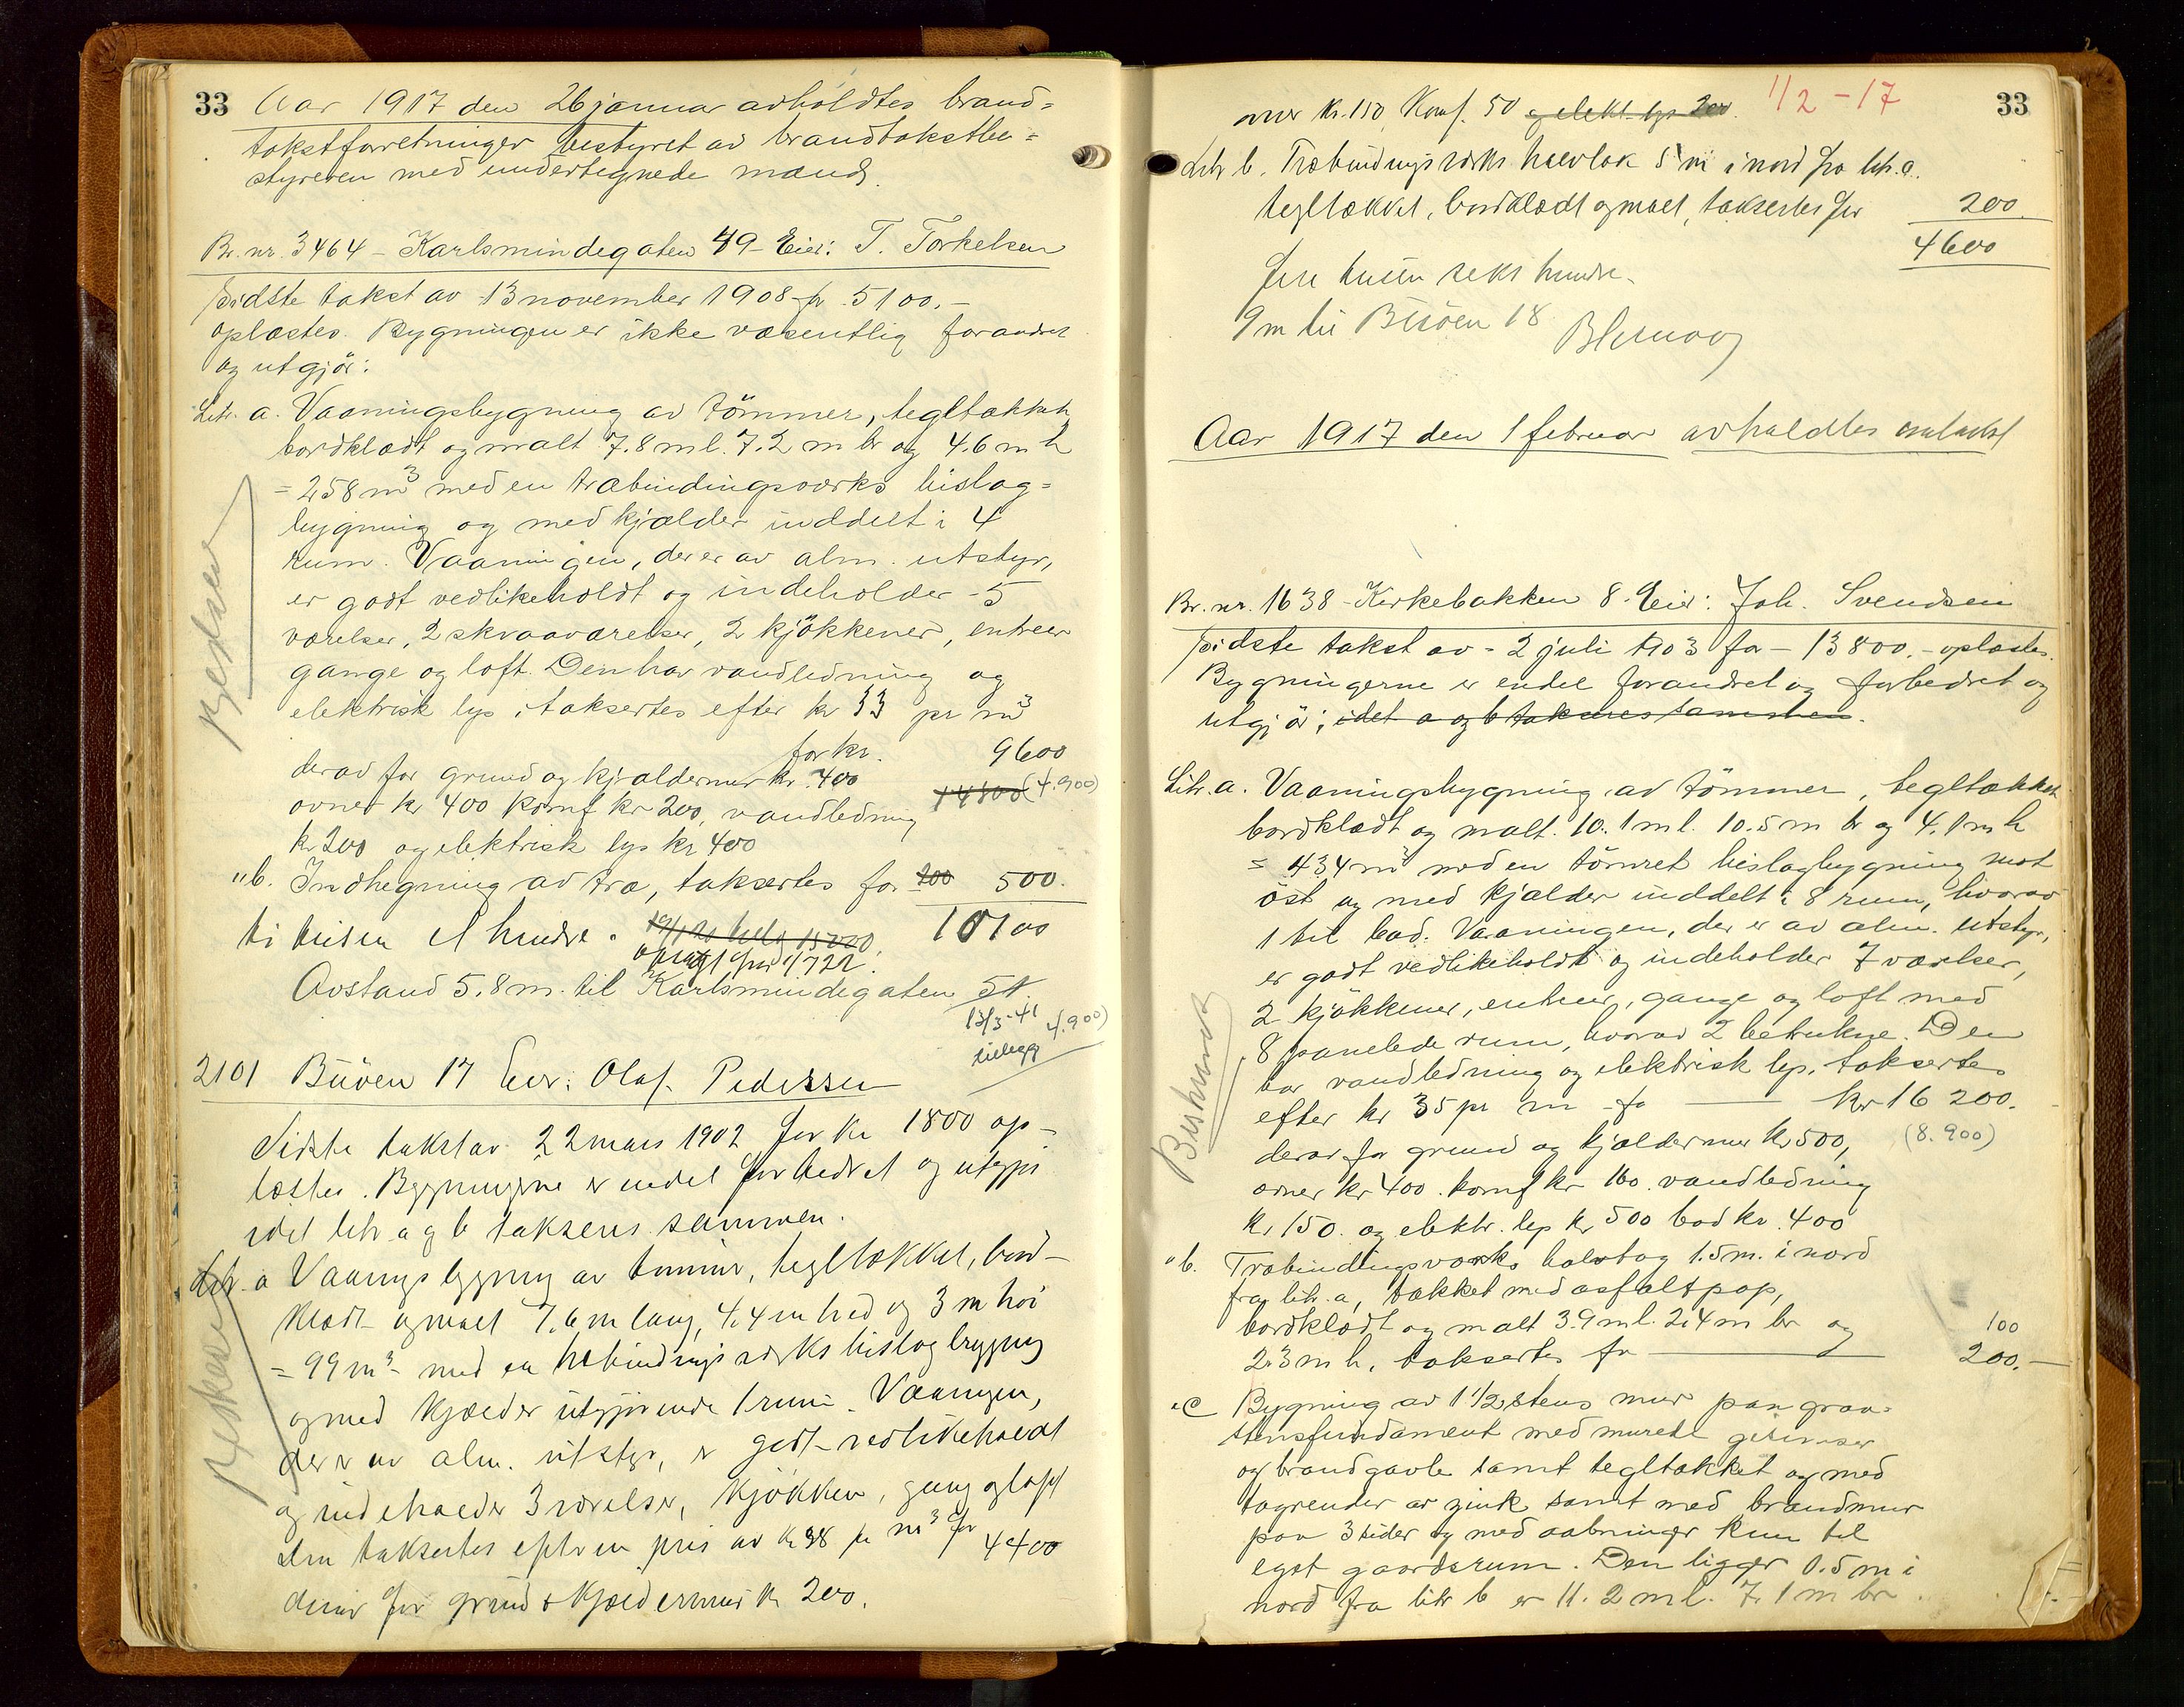 33 Aar 1917 den 26 januar avholdtes brand=
takstforretninger bestyret av brandtakstbe=
styreren med undertegnede mænd.
Br. nr. 3464 - Karlsmindegaten 49 - Eier: T. Torkelsen
Sidste takst av 13 november 1908 for 5100.-
oplæstes. Bygningen er ikke væsentlig forandret
og utgjör:
Litr. a. Vaaningsbygning av tömmer, tegltækket,
bordklædt og malt 7.8 m l. 7.2 m br og 4.6 m h
= 258 m³ med en træbindingsverks bislag=
bygning og med kjælder inddelt i 4
rum. Vaaningen, der er av alm. utstyr,
er godt vedlikeholdt og indeholder 5
værelser, 2 skraaværelser, 2 kjökkener, entreer
gange og loft. Den har vandledning og
elektrisk lys, taksertes efter kr 33 pr m³
for kr. 9600
derav for grund og kjældermur kr. 400
14500 (4.900)
ovner kr 400 komf kr 200, vandledning
kr 200 og elektrisk lys kr 400
"b. Indhegning av træ, taksertes for 200 500.
ti tusen et hundre. 15000 10100
Avstand 5.8 m. til Karlsmindegaten 51
13/3-41 4.900)
tillegg
2101 Biiöen 17 Eier: Olaf Pedersen
Sidste takst av 22 mars 1902 for kr 1800 op-
læstes. Bygningerne er endel forbedret og utgjör
idet litr a og b takseres sammen.
Litr. a Vaaningsbygning av tömmer, tegltækket, bord-
klædt og malt 7.6 m lang, 4.4 m bred og 3 m höi
= 99 m³ med en træbindingsverks bislagbygning
og med kjælder utgjörende 1 rum. Vaaningen,
der er av alm. utstyr, er godt vedlikeholdt
og indeholder 3 værelser, kjökken, gang og loft
Den taksertes efter en pris av kr 38 pr m³ for 4400
derav for grund & kjældermur kr 200.
Beskrevet
Beskrevet
ovner kr. 150, Komf. 50 og elekt. lys 200. 1/2-17 33
Litr b. Træbindingsverks halvtak 5 m i nord fra litr. a.
tegltækket, bordklædt og malt, taksertes for 200
4600
fire tusen seks hundre.
9 m til Biiöen 18
Aar 1917 den 1 februar avholdtes omtakst
Br. nr. 1638 - Kirkebakken 8. Eier: Joh. Svendsen
Sidste takst av - 2 juli 1903 for - 13800.- oplæstes.
Bygningerne er endel forandret og forbedret og
utgjör; idet a og b takseres sammen.
Litr. a. Vaaningsbygning av tömmer, tegltækket
bordklædt og malt. 10.1 m l. 10.5 m br og 4.1 m h
= 434 m³ med en tömret bislagbygning mot
öst og med kjælder inddelt i 8 rum, hvorav
1 til bad. Vaaningen, der er av alm. utstyr,
er godt vedlikeholdt og indeholder 7 værelser,
2 kjökkener, entreer, gange og loft med
8 panelede rum, hvorav 2 betrukne. Den
har vandledning og elektrisk lys. taksertes
efter kr 35 pr m for kr 16 200.
derav for grund og kjældermur kr 500, (8.900)
ovner kr 400. komf kr 160. vandledning
kr 150. og elektr. lys kr 500 bad kr. 400
"b. Træbindingsverks halvtag 1.5 m. i nord
fra litr. a, tækket med asfaltpap,
bordklædt og malt 3.9 m l. 2.4 m br og 100
2.3 m h, taksertes for 200.-
"c Bygning av 1 1/2 stens mur paa graa=
stensfundament med murede gesimser
og brandgavle samt tegltækket og med
tagrender av zink samt med brandmur
paa 3 sider og med aabninger kun til
eget gaardsrum. Den ligger 0.5 m i
nord fra litr b er 11.2 m l. 7.1 m br.
Beskrevet